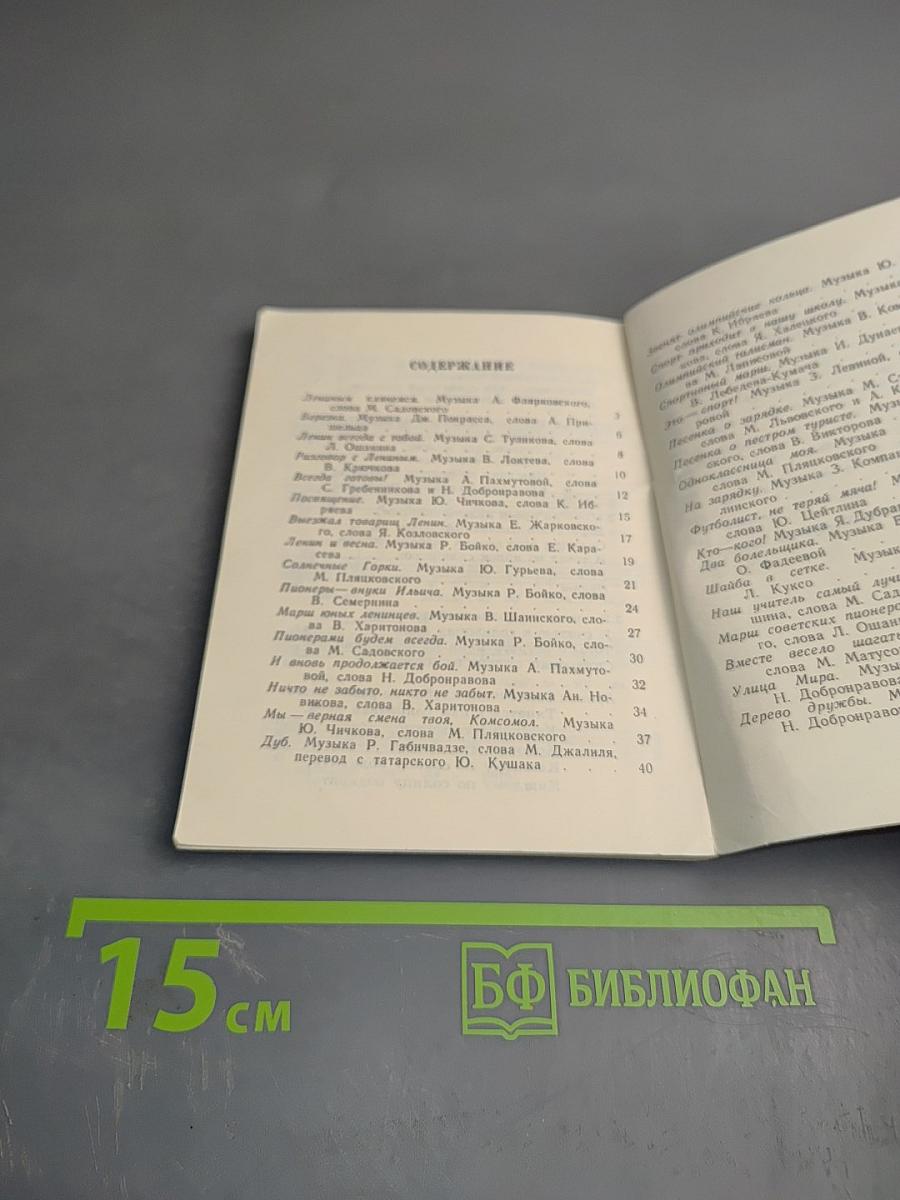 СОДЕРЖАНИЕ
Лениным клянемся. Музыка А. Флярковского,
слова М. Садовского . . . . . . 3
Музыка Дж. Покрасса, слова А. При-
шельца . . . . . . 6
Ленин всегда с тобой. Музыка С. Туликова, слова
Л. Ошанина . . . . . . 8
Разговор с Лениным. Музыка В. Локтева, слова
В. Крючкова . . . . . . 10
Всегда готовы! Музыка А. Пахмутовой, слова
С. Гребенникова и Н. Добронравова . . . 12
Посвящение. Музыка Ю. Чичкова, слова К. Иб-
ряева . . . . . . 15
Выезжал товарищ Ленин. Музыка Е. Жарковско-
го, слова Я. Козловского . . . . 17
Ленин и весна. Музыка Р. Бойко, слова Е. Кара-
сева . . . . . . 19
Солнечные Горки. Музыка Ю. Гурьева, слова
М. Пляцковского . . . . . 21
Пионеры — внуки Ильича. Музыка Р. Бойко, слова
В. Семернина . . . . . 24
Марш юных ленинцев. Музыка В. Шаинского, сло-
ва В. Харитонова . . . . . 27
Пионерами будем всегда. Музыка Р. Бойко, сло-
ва М. Садовского . . . . . 30
И вновь продолжается бой. Музыка А. Пахмуто-
вой, слова Н. Добронравова . . . . 32
Ничто не забыто, никто не забыт. Музыка Ан. Но-
викова, слова В. Харитонова . . . . 34
Мы — верная смена твоя, Комсомол. Музыка
Ю. Чичкова, слова М. Пляцковского . . . 37
Дуб. Музыка Р. Габичвадзе, слова М. Джалиля,
перевод с татарского Ю. Кушака . . . 40
Звенят олимпийские кольца. Музыка Ю.
слова К. Ибряева
Спорт приходит в нашу школу. Музыка
кова, слова Я. Халецкого
Олимпийский талисман. Музыка В. Ком
ва М. Лаписовой
Спортивный марш. Музыка И. Дунае
В. Лебедева-Кумача
Это — спорт! Музыка З. Левиной,
ровой
Песенка о зарядке. Музыка М. С
слова М. Львовского и А. К
Песенка о пестром туристе. Музы
ского, слова В. Викторова
Одноклассница моя. Музыка
слова М. Пляцковского
На зарядку. Музыка З. Компа
линского
Футболист, не теряй мяча! М
слова Ю. Цейтлина
Кто—кого! Музыка Я. Дубра
Два болельщика. Музыка Е
О. Фадеевой
Шайба в сетке. Музык
Л. Куксо
Наш учитель самый лучш
шина, слова М. Сад
Марш советских пионеро
го, слова Л. Ошан
Вместе весело шагат
слова М. Матусо
Улица Мира. Музы
Н. Добронравова
Дерево дружбы. М
Н. Добронравов
15 см
БФ БИБЛИОФАН